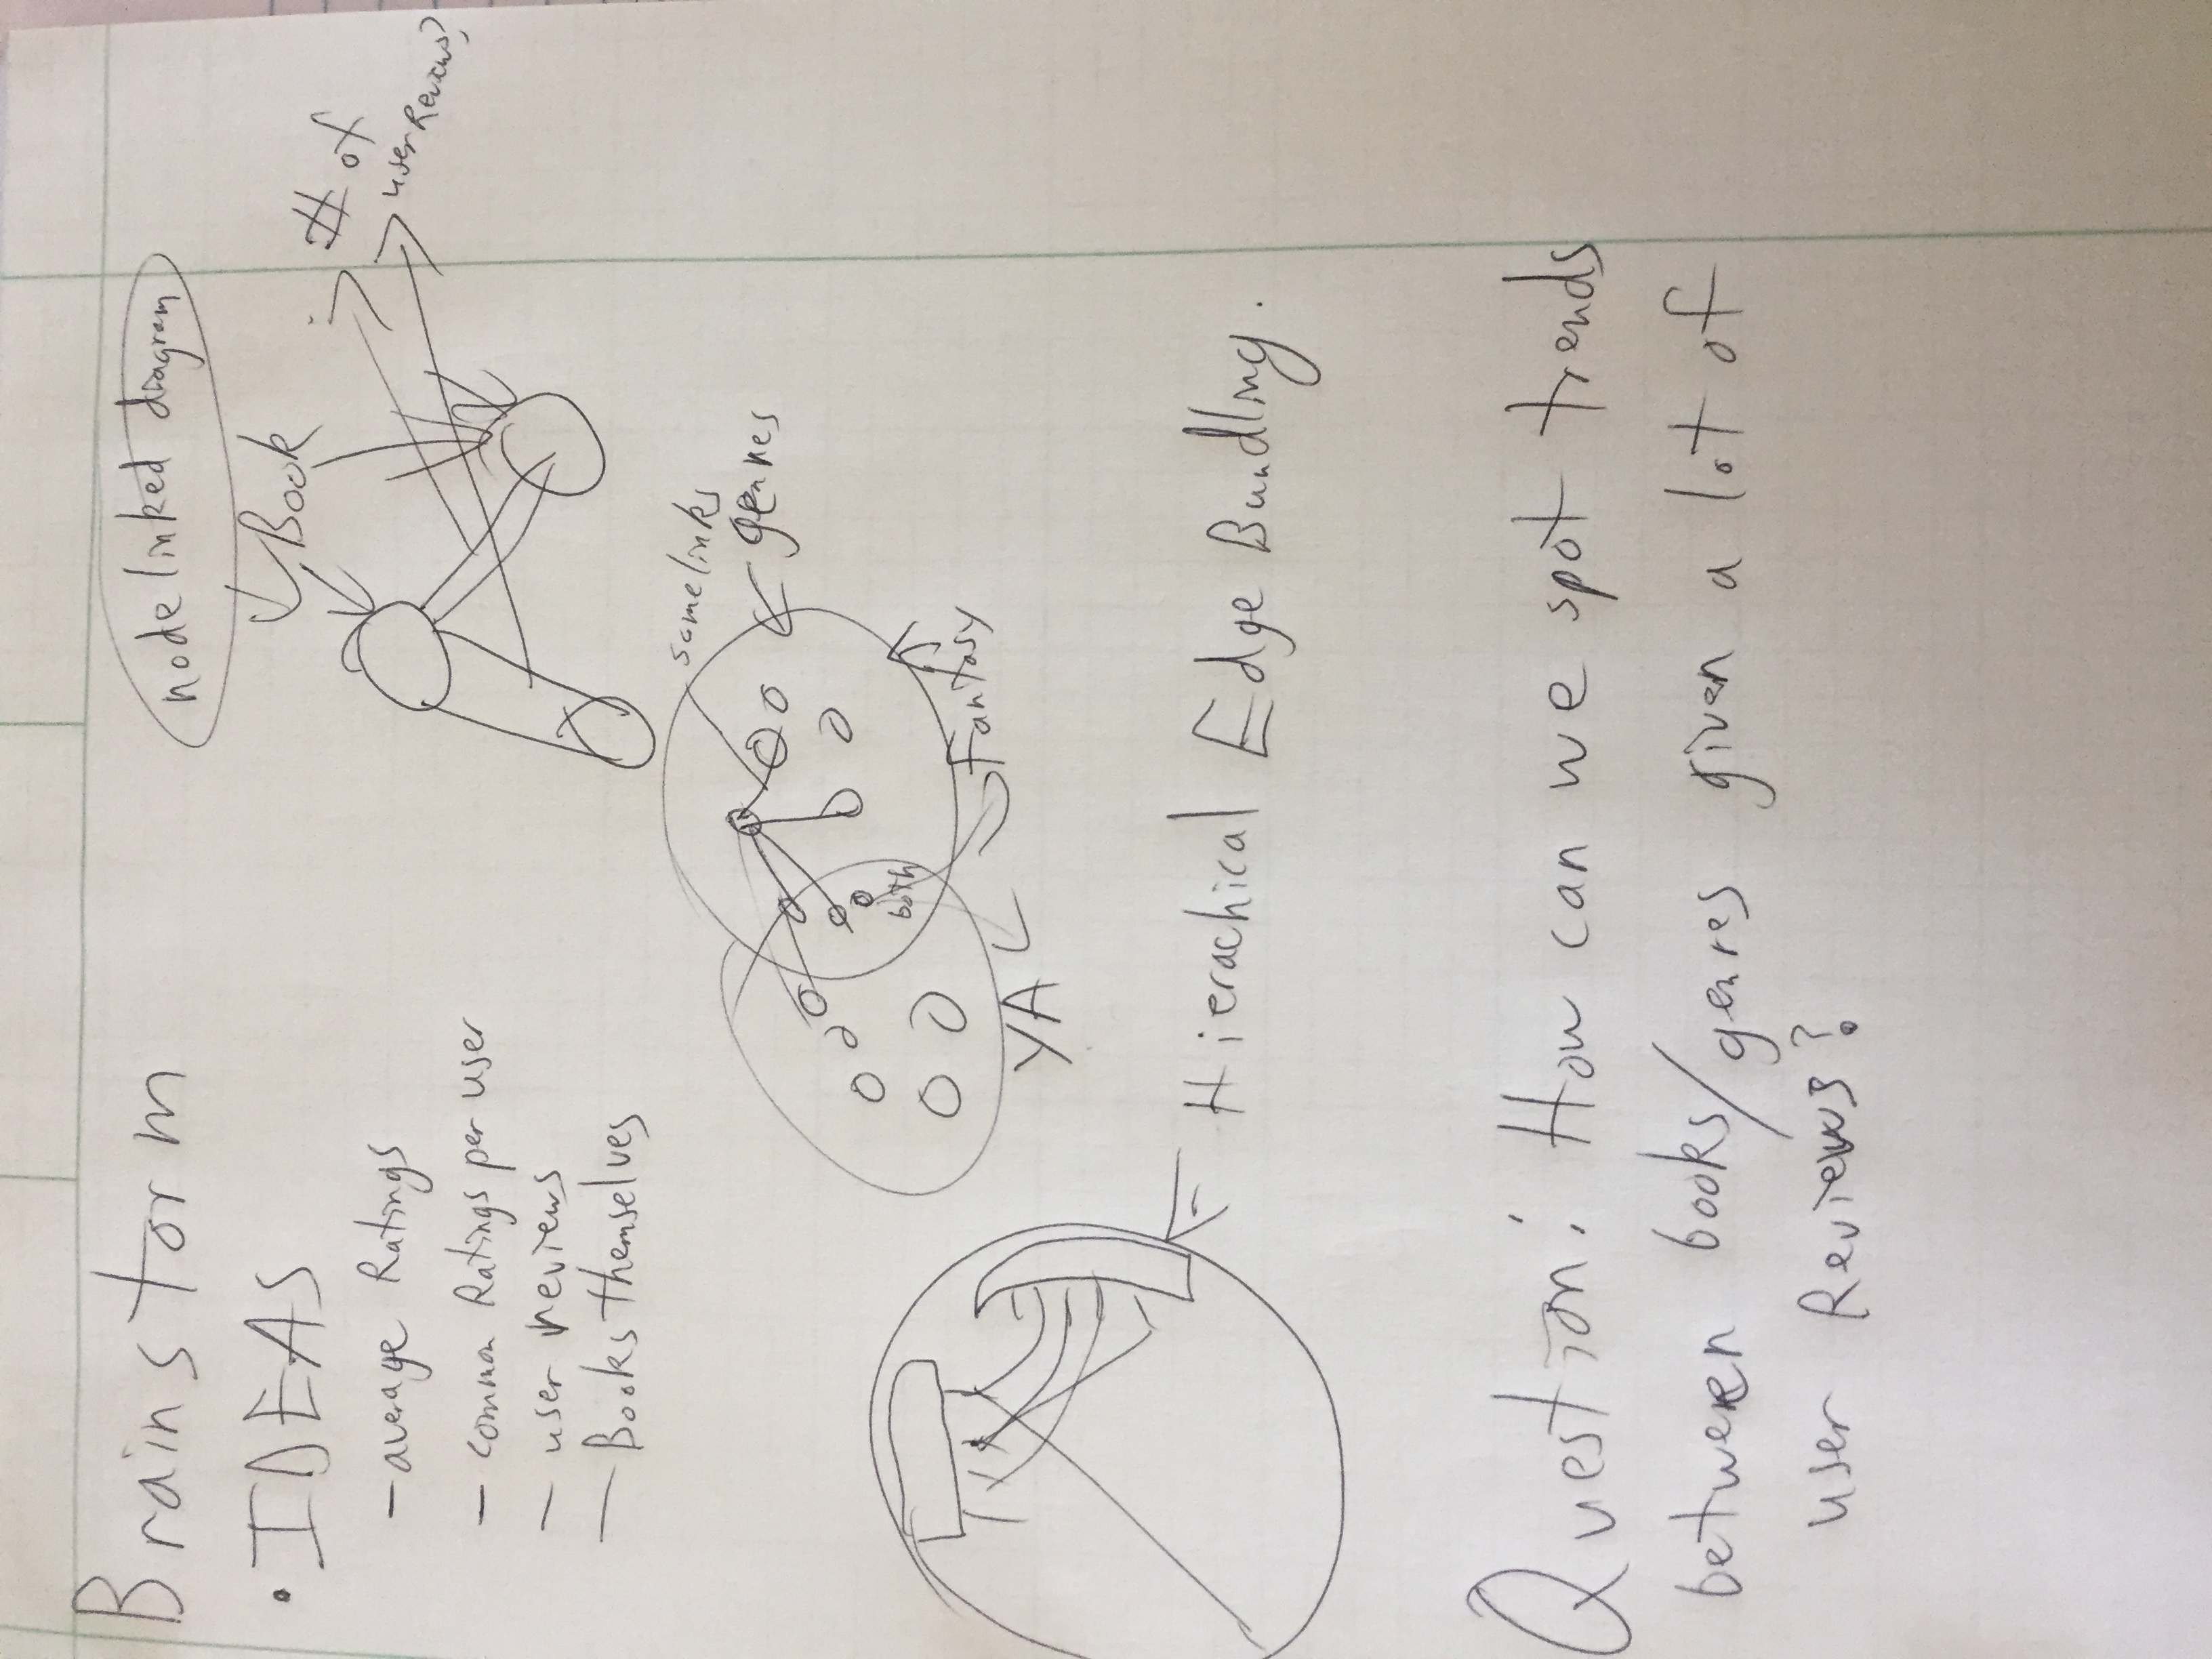 Brainstorm
• IDEAS
– average Ratings
– common Ratings per user
– user reviews
– Books themselves
node linked diagram
Book
# of
user Reviews?
same links
genres
both
Fantasy
YA
Hierachical Edge Bundling.
Question: How can we spot trends
between books/genres given a lot of
user Reviews?